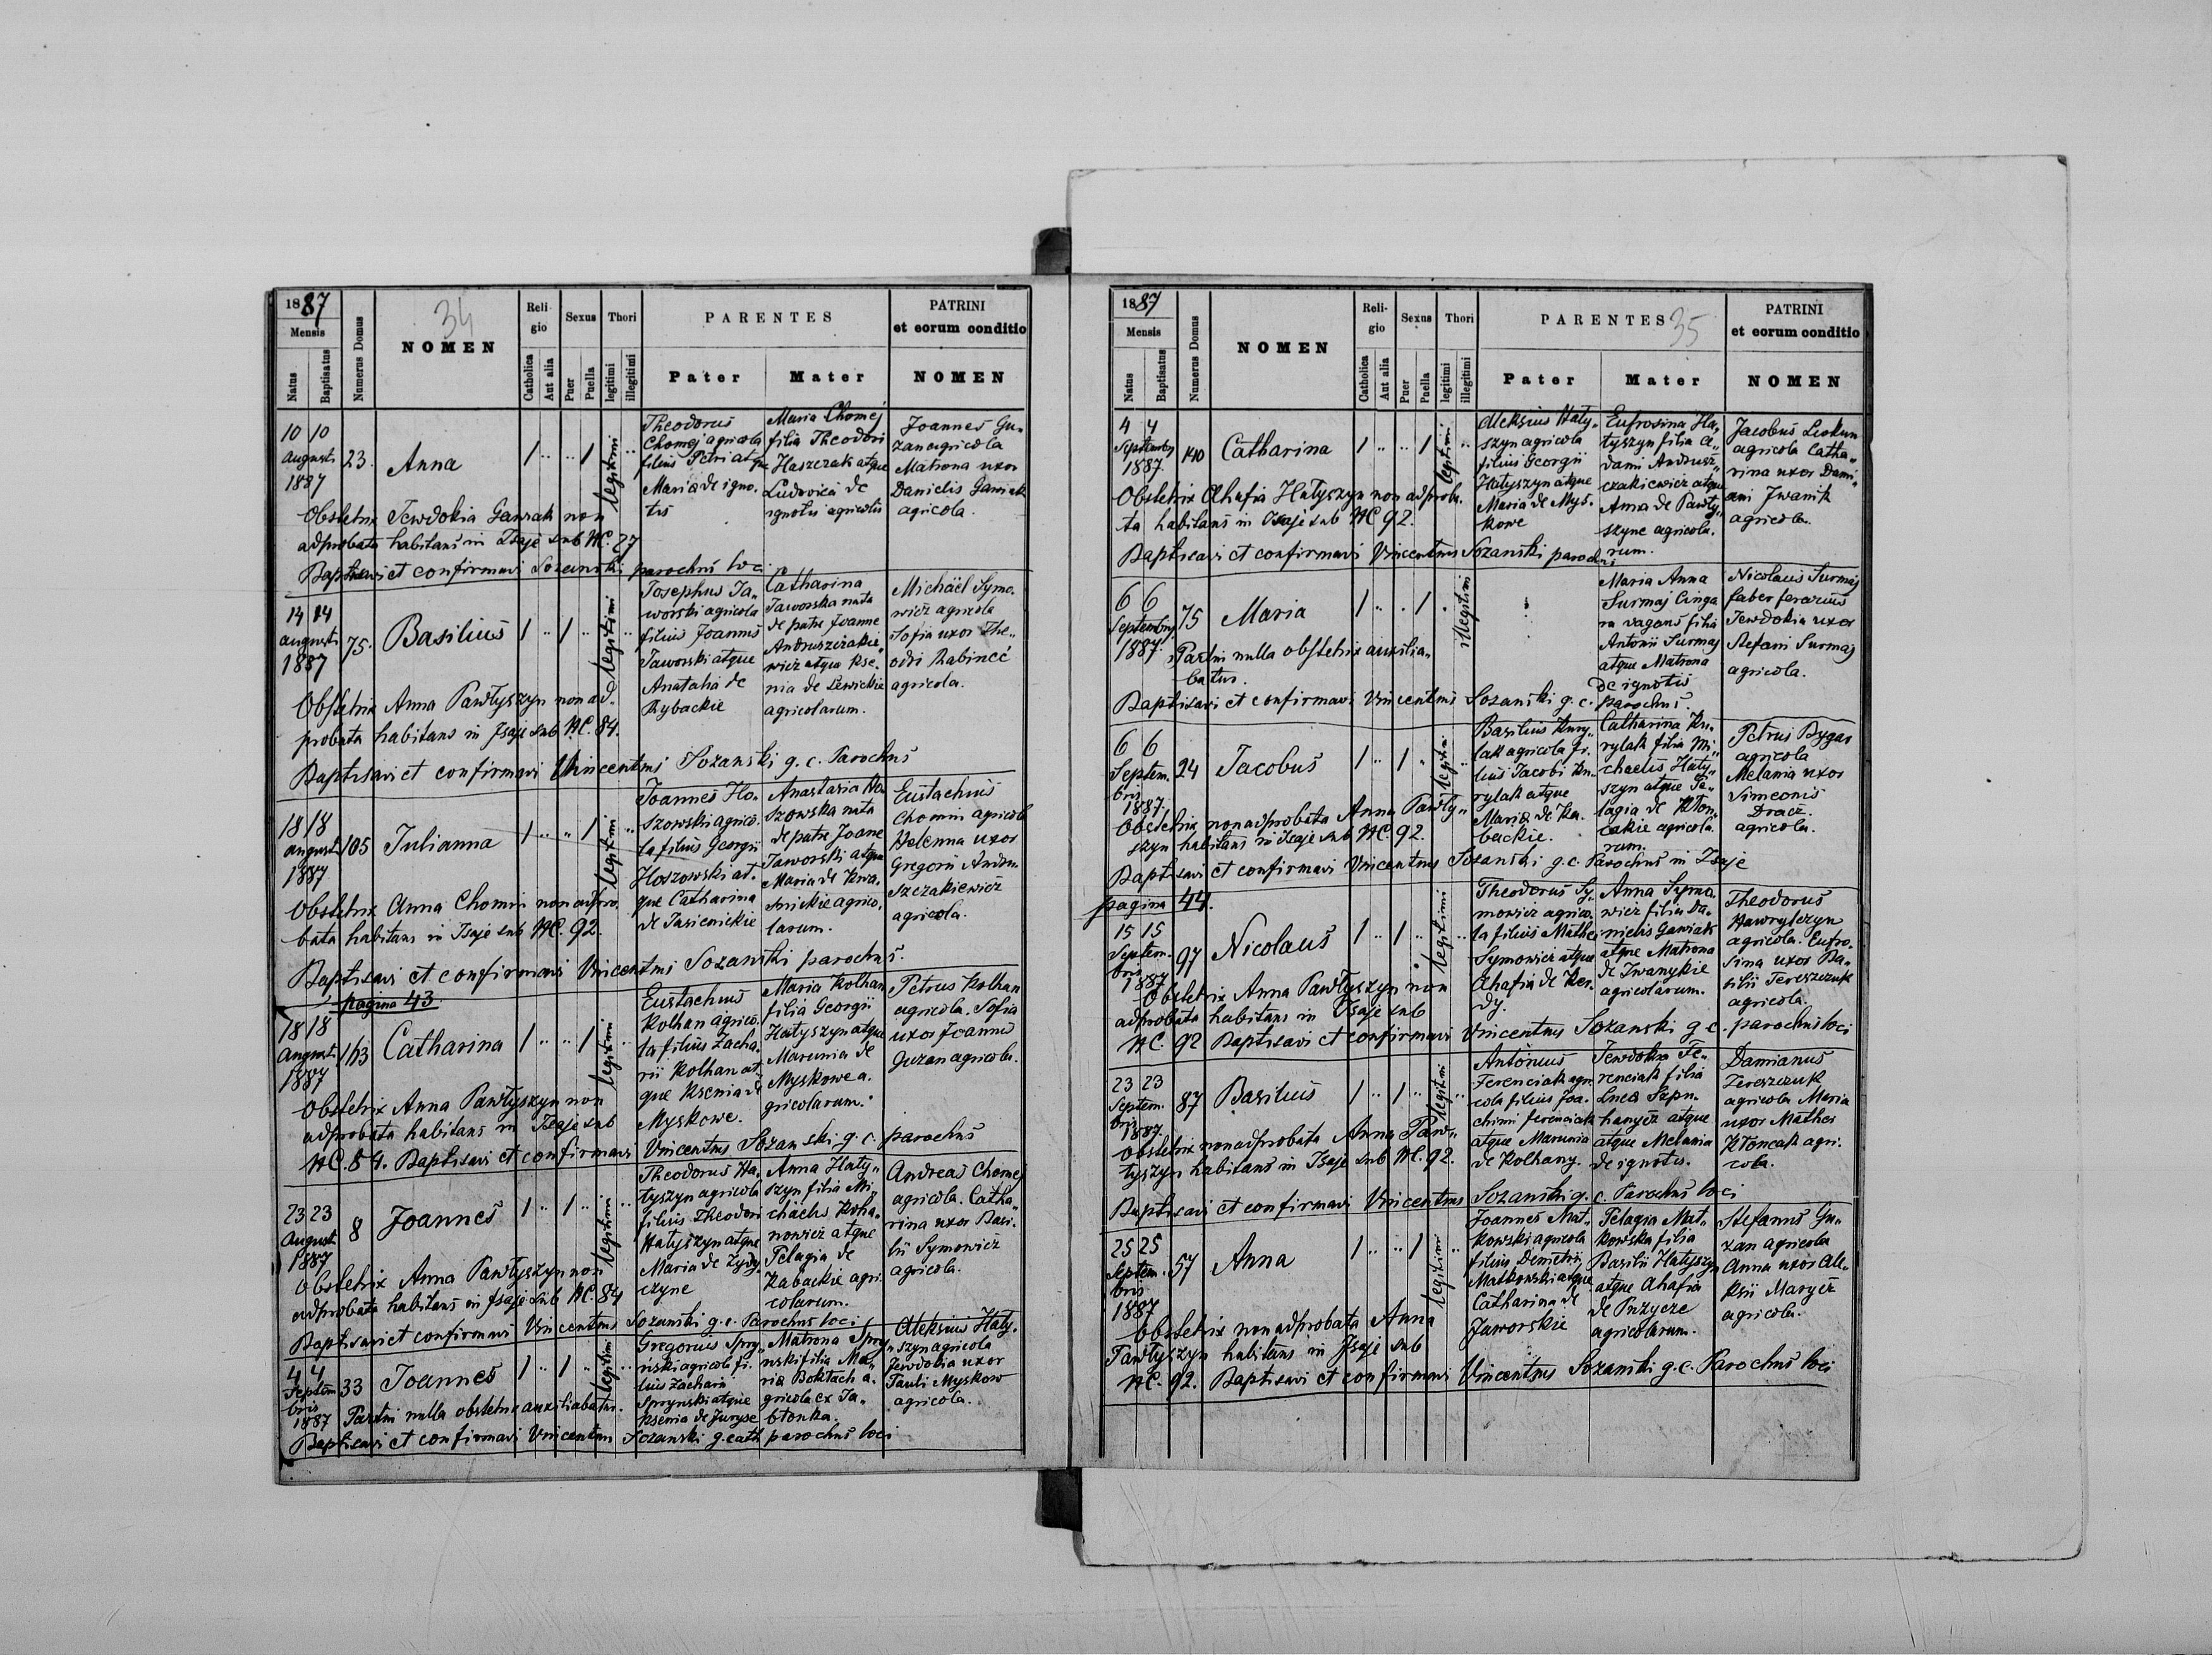 1887
Mensis
Natus
Baptisatus
Numerus Domus
34
NOMEN
Reli-
gio
Catholica
Aut alia
Sexus
Puer
Puella
Thori
legitimi
illegitimi
PARENTES
Pater
Mater
PATRINI
et eorum conditio
NOMEN
10 10
Augusti
1887
23.
Anna
1 .. .. 1
legitimi
Theodorus
Chomej agricola
filius Petri atque
Maria de igno-
tis
Maria Chomej
filia Theodori
Haszczak atque
Ludovica de
ignotis agricolis
Joannes Gu-
zan agricola
Matrona uxor
Danielis Gawiak
agricola.
Obstetrix Jewdokia Gawiak non
adprobata habitans in Isaje sub NC. 27
Baptisavi et confirmavi Sozanski parochus loci
14 14
Augusti
1887
75.
Basilius
1 .. 1 ..
legitimi
Josephus Ja-
worski agricola
filius Joannis
Jaworski atque
Anatalia de
Rybackie
Catharina
Jaworska nata
de patre Joanne
Andruszczakie-
wicz atque Kse-
nia de Lewickie
agricolarum.
Michaël Symo-
wicz agricola
Sofia uxor The-
odri Rabineć
agricola.
Obstetrix Anna Pawłyszyn non ad-
probata habitans in Isaje sub NC. 84.
Baptisavi et confirmavi Vincentius Sozanski g. c. Parochus
18 18
Augusti
1887
105
Julianna
1 .. .. 1
legitimi
Joannes Ho-
szowski agrico-
la filius Georgii
Hoszowski at-
que Catharina
de Jasienickie
Anastasia Ho-
szowska nata
de patre Joane
Jaworski atque
Maria de Kwa-
snickie agrico-
larum.
Eustachius
Chomin agricola
Helenna uxor
Gregorii Andru-
szczakiewicz
agricola.
Obstetrix Anna Chomin non adpro-
bata habitans in Isaje sub NC. 92.
Baptisavi et confirmavi Vincentius Sozanski parochus.
pagina 43
18 18
Augusti
1887
163
Catharina
1 .. .. 1
legitimi
Eustachius
Kolhan agrico-
la filius Zacha-
rii Kolhan at-
que Ksenia de
Myskowe.
Maria Kolhan
filia Georgii
Hatyszyn atque
Marunia de
Myskowe a-
gricolarum.
Petrus Kolhan
agricola. Sofia
uxor Joannis
Guzan agricola.
Obstetrix Anna Pawłyszyn non
adprobata habitans in Isaje sub
NC. 84. Baptisavi et confirmavi Vincentius Sozanski g. c. parochus
23 23
August
1887
8
Joannes
1 .. 1 ..
legitimi
Theodorus Ha-
tyszyn agricola
filius Theodori
Hatyszyn atque
Maria de Zydy-
czyne
Anna Haty-
szyn filia Mi-
chaelis Koha-
nowicz atque
Pelagia de
Kabackie agri-
colarum.
Andreas Chomej
agricola. Catha-
rina uxor Basi-
lii Symowicz
agricola.
Obstetrix Anna Pawłyszyn non
adprobata habitans in Isaje sub NC. 84
Baptisavi et confirmavi Vincentius Sozanski g. c. Parochus loci
4 4
Septem-
bris
1887
33
Joannes
1 .. 1 ..
legitimi
Gregorius Spry-
nski agricola fi-
lius Zacharii
Sprynski atque
Ksenia de Juryse
Matrona Spry-
nski filia Ma-
ria Boktach a-
gricola ex Ja-
błonka.
Aleksius Haty-
szyn agricola
Jewdokia uxor
Pauli Myskow
agricola.
Partui nulla obstetrix auxiliabatur.
Baptisavi et confirmavi Vincentius Sozanski g. cath parochus loci
1887
Mensis
Natus
Baptisatus
Numerus Domus
NOMEN
Reli-
gio
Catholica
Aut alia
Sexus
Puer
Puella
Thori
legitimi
illegitimi
PARENTES 35
Pater
Mater
PATRINI
et eorum conditio
NOMEN
4 4
Septembris
1887
140
Catharina
1 .. .. 1
legitimi
Aleksius Haty-
szyn agricola
filius Georgii
Hatyszyn atque
Maria de Mys-
kowe
Eufrosina Ha-
tyszyn filia A-
dami Andrusz-
czakiewicz atque
Anna de Pawły-
szyne agricola-
rum.
Jacobus Leskun
agricola Catha-
rina uxor Dami-
ani Iwanik
agricola.
Obstetrix Ahafia Hatyszyn non adproba-
ta habitans in Isaje sub NC 92.
Baptisavi et confirmavi Vincentius Sozanski parochus
6 6
Septembris
1887
75
Maria
1 .. .. 1
illegitimi
Maria Anna
Surmaj Cinga
ra vagans filia
Antonii Surmaj
atque Matrona
de ignotis
Nicolaus Surmaj
faber ferarius
Jewdokia uxor
Stefani Surmaj
agricola.
Partui nulla obstetrix auxilia-
batur.
Baptisavi et confirmavi Vincentius Sozanski g. c. parochus.
6 6
Septem-
bris
1887.
24
Jacobus
1 .. 1 ..
legitimi
Basilius Kury-
lak agricola fi-
lius Jacobi Ku-
rylak atque
Maria de Ka-
backie.
Catharina Ku-
rylak filia Mi-
chaelis Haty-
szyn atque Pe-
lagia de Kłon-
cakie agricola-
rum.
Petrus Bygar
agricola
Melania uxor
Simeonis
Dracz.
agricola.
Obstetrix non adprobata Anna Pawły-
szyn habitans in Isaje sub NC. 92.
Baptisavi et confirmavi Vincentius Sozanski g. c. Parochus in Isaje
pagina 44.
15 15
Septem-
bris
1887
97
Nicolaus
1 .. 1 ..
legitimi
Theodorus Sy-
mowicz agrico-
la filius Mathei
Symowicz atque
Ahafia de Ker-
dy.
Anna Symo-
wicz filia Da-
nielis Gawiak
atque Matrona
de Iwanykie
agricolarum.
Theodorus
Hawrylczyn
agricola. Eufro-
sina uxor Ba-
silii Tereszczuk
agricola.
Obstetrix Anna Pawłyszyn non
adprobata habitans in Isaje sub
NC. 92 Baptisavi et confirmavi Vincentius Sozanski g. c. parochus loci
23 23
Septem-
bris
1887.
87
Basilius
1 .. 1 ..
legitimi
Antonius
Ferenciak agri-
cola filius Joa-
chimi Ferenciak
atque Marunia
de Kolhany.
Jewdokia Fe-
renciak filia
Lucä Szpu-
hanycz atque
atque Melania
de ignotis.
Damianus
Tereszczuk
agricola Maria
uxor Mathei
Kłoncak agri-
cola.
Obstetrix non adprobata Anna Paw-
łyszyn habitans in Isaje sub NC. 92.
Baptisavi et confirmavi Vincentius Sozanski g. c. Parochus loci
25 25
Septem-
bris
1887
57
Anna
1 .. .. 1
legitimi
Joannes Mat-
kowski agricola
filius Demetrii
Matkowski atque
Catharina de
Jaworskie
Pelagia Mat-
kowska filia
Basilii Hatyszyn
atque Ahafia
de Przycze
agricolarum.
Stefanus Gu-
zan agricola
Anna uxor Ale-
ksii Marycz
agricola.
Obstetrix non adprobata Anna
Pawłyszyn habitans in Isaje sub
NC. 92. Baptisavi et confirmavi Vincentius Sozanski g. c. Parochus loci